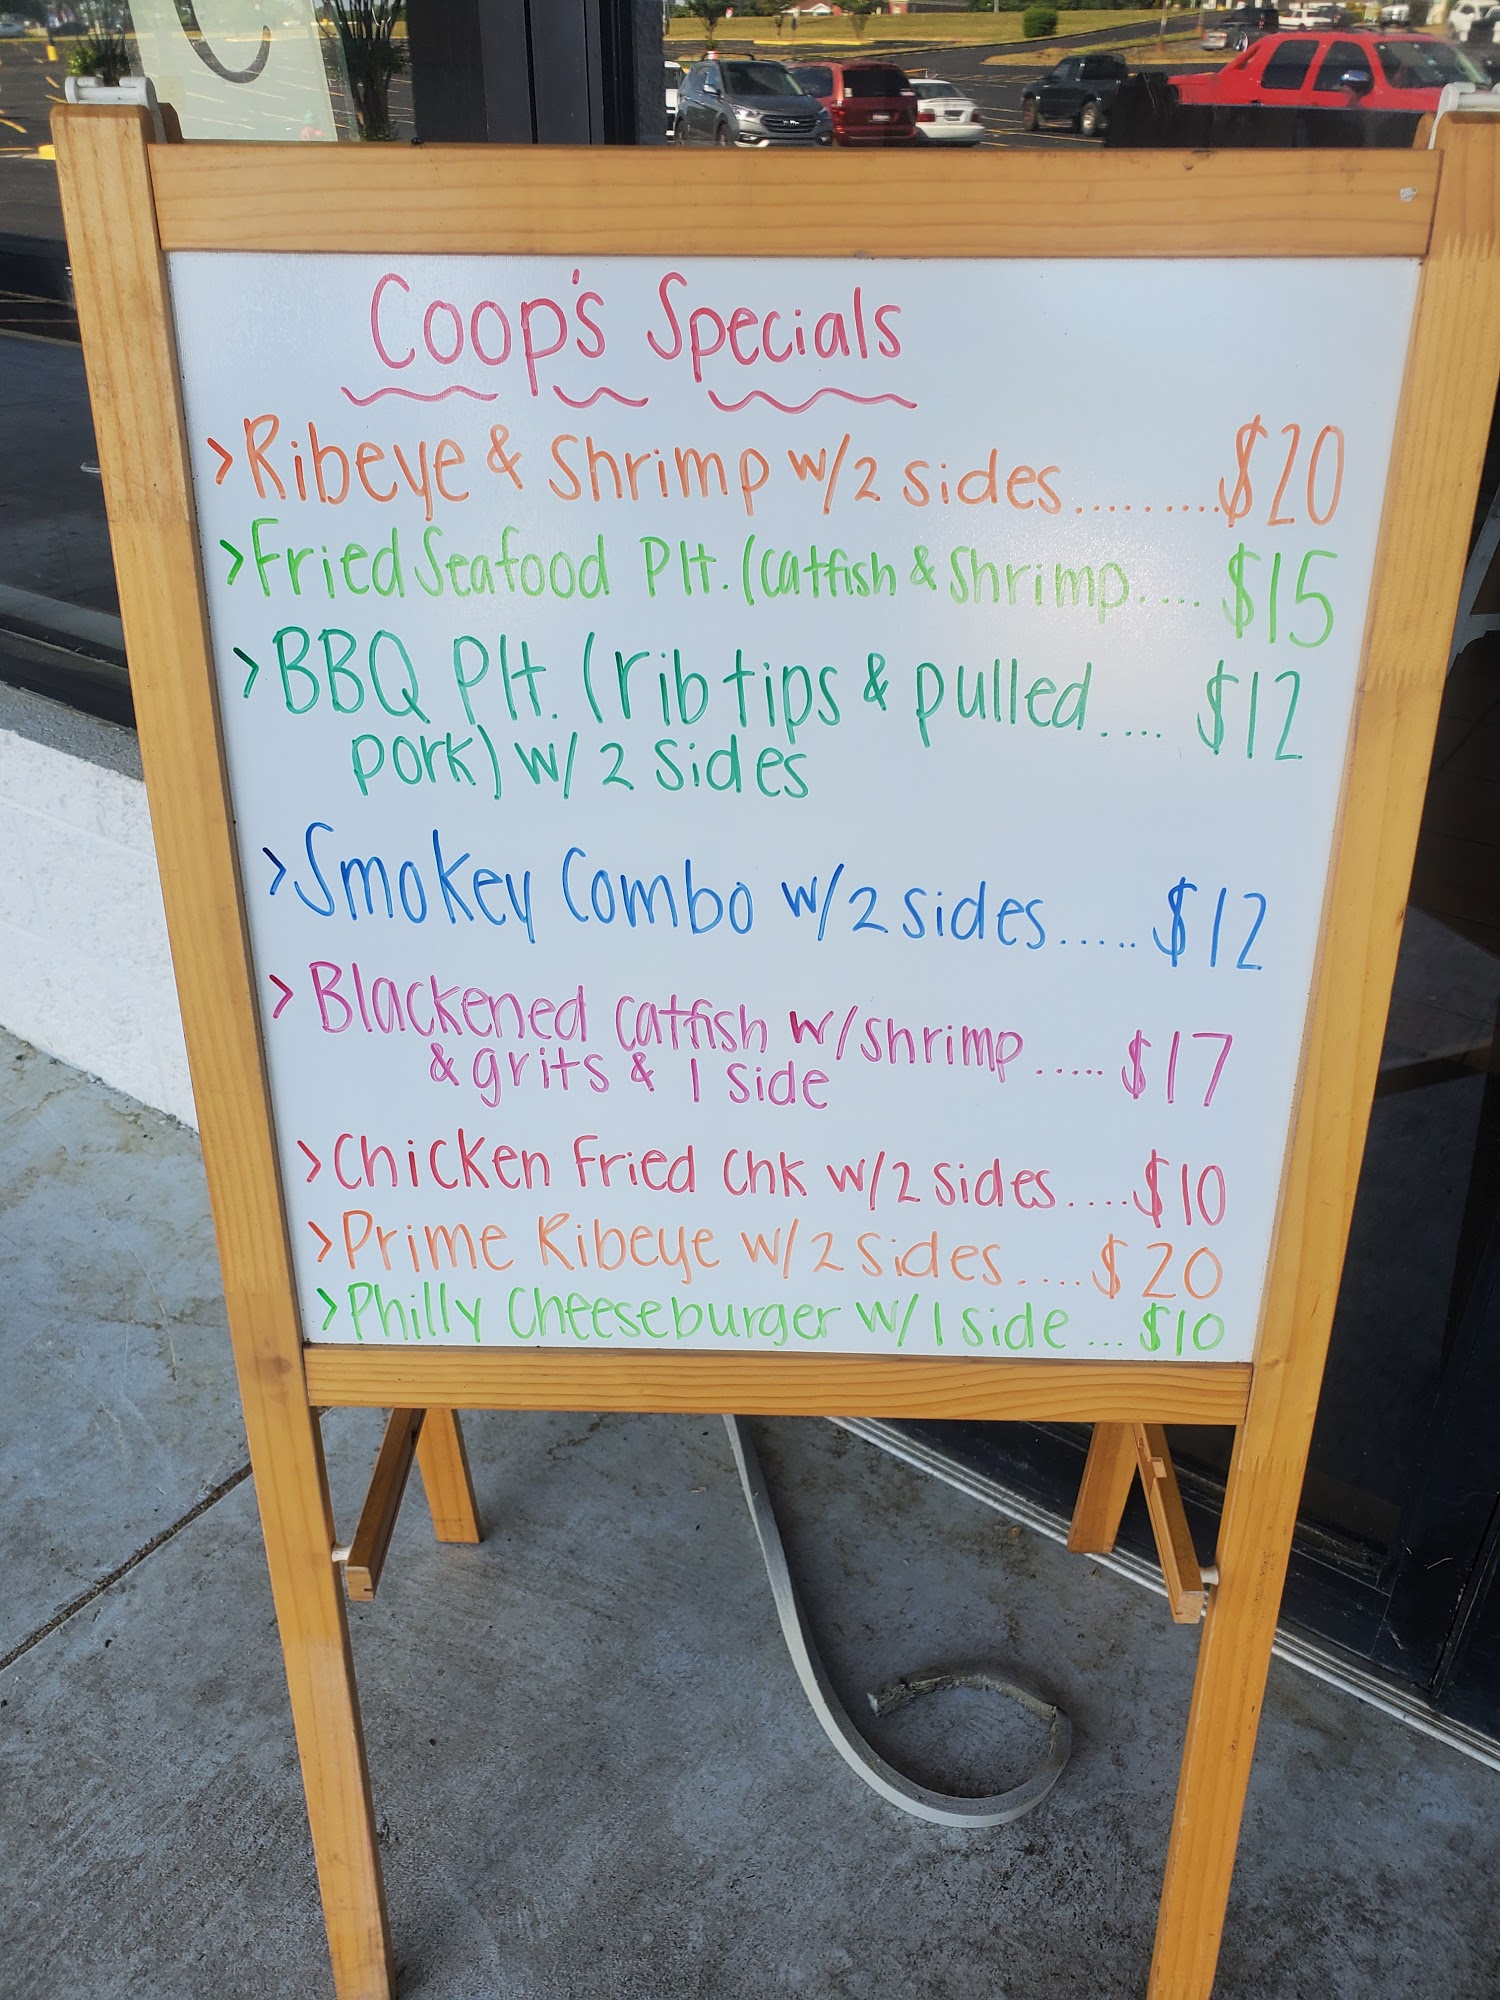 Coop's Specials
>Ribeye & Shrimp w/2 sides.........$20
>Fried Seafood Plt. (Catfish & Shrimp.... $15
>BBQ Plt. (rib tips & pulled.... $12
pork) w/ 2 sides
>Smokey Combo w/2 sides..... $12
>Blackened Catfish w/shrimp..... $17
& grits & 1 side
>Chicken Fried Chk w/2 sides....$10
>Prime Ribeye w/2 sides....$20
>Philly Cheeseburger w/1 side ...$10